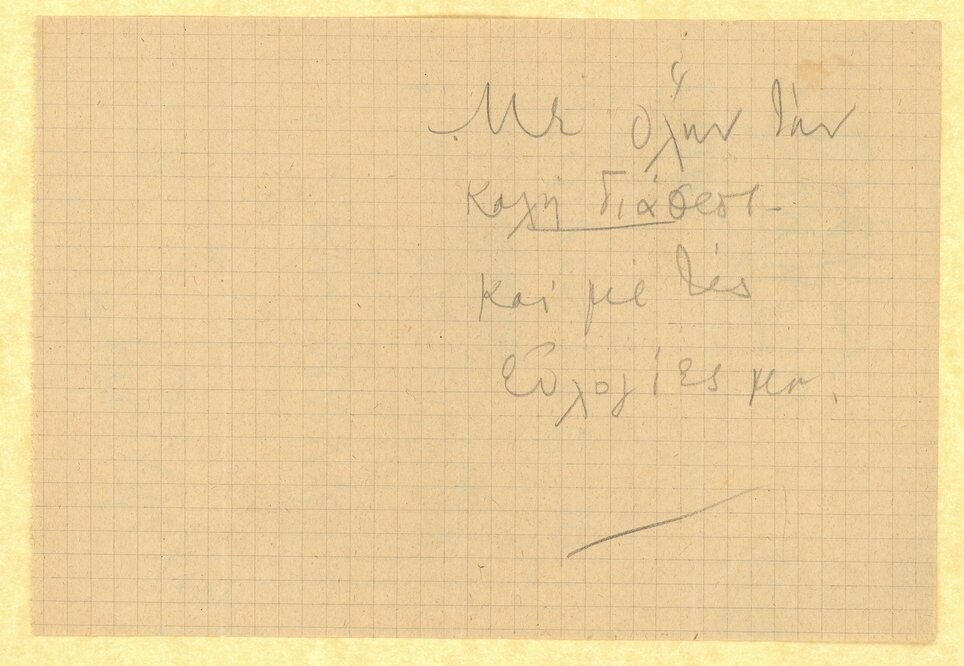 Με όλην την
καλή διάθεσι
και με τές
ευλογίες μου.